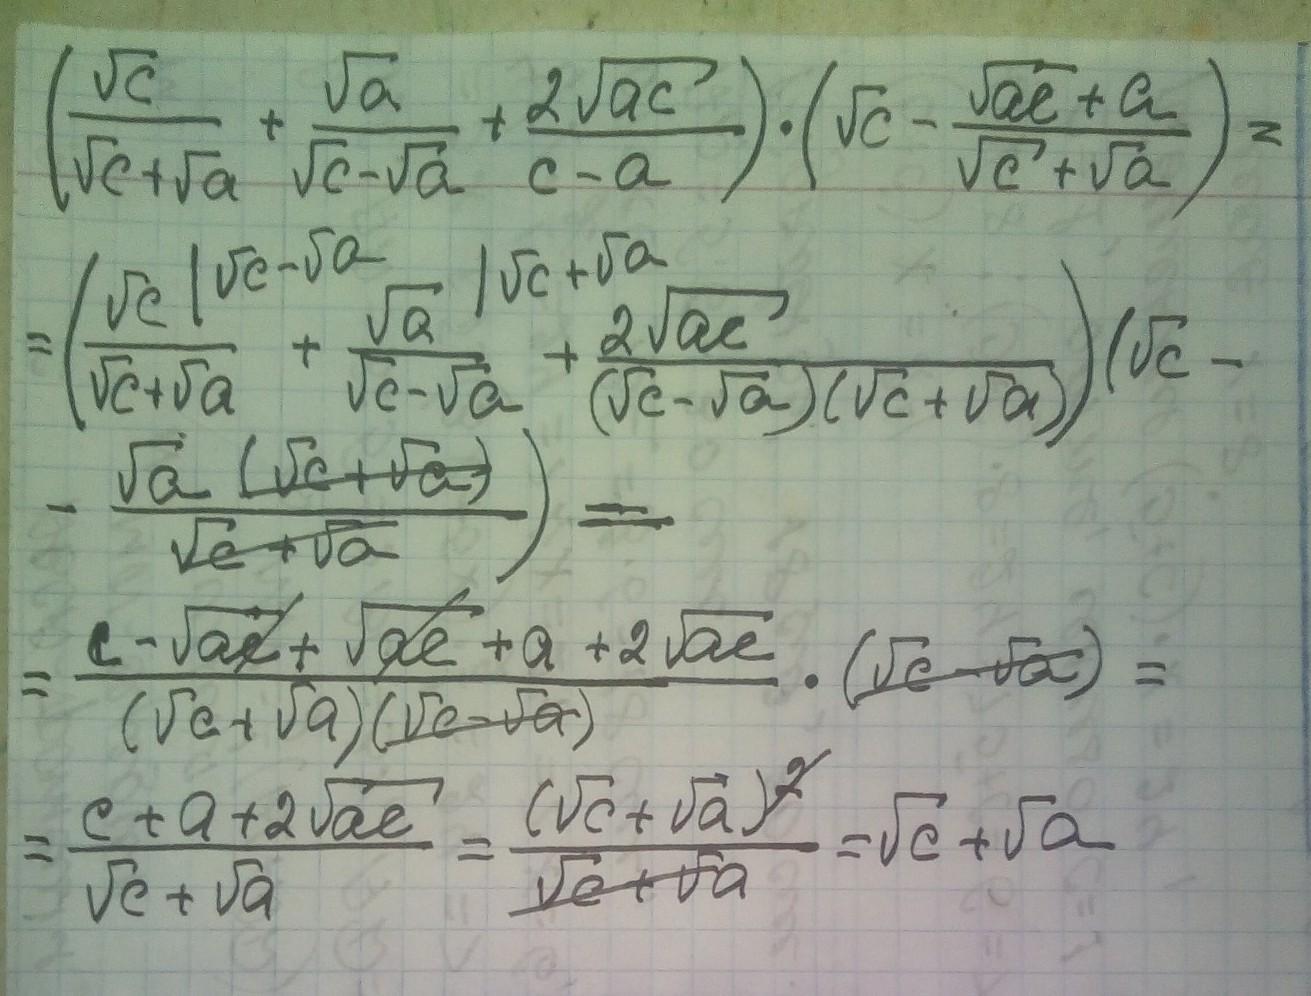 (√c/(√c+√a) + √a/(√c-√a) + 2√ac/(c-a)) · (√c - (√ac+a)/(√c+√a)) =
= (√c |√c-√a /(√c+√a) + √a |√c+√a /(√c-√a) + 2√ac/((√c-√a)(√c+√a))) (√c -
- √a (√c+√a)/(√c+√a)) =
= (c-√ac+√ac+a+2√ac)/((√c+√a)(√c-√a)) · (√c-√a) =
= (c+a+2√ac)/(√c+√a) = (√c+√a)²/(√c+√a) = √c+√a